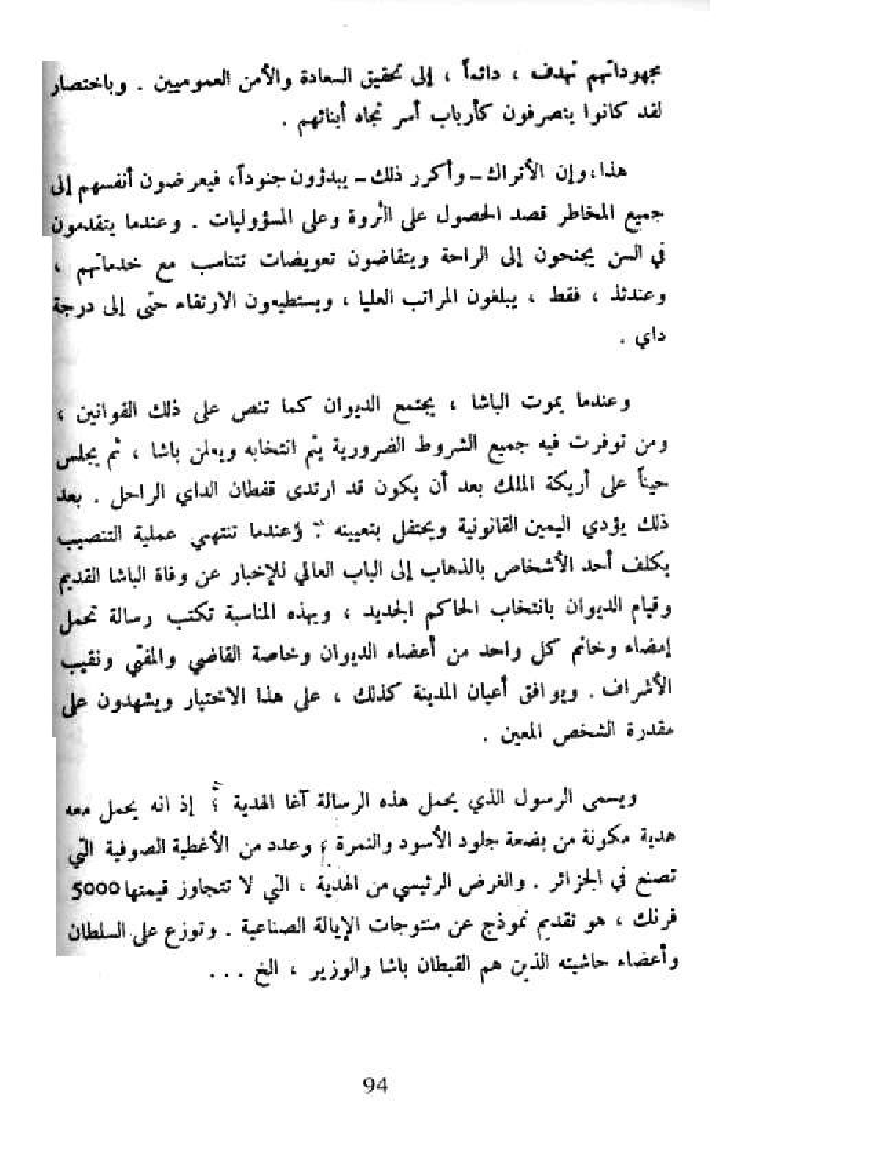 مجهوداتهم تهدف ، دائماً ، إلى تحقيق السعادة والأمن العموميين . وباختصار
لقد كانوا يتصرفون كأرباب أسر تجاه أبنائهم .
هذا،وإن الأتراك ـ وأكرر ذلك ـ يبدؤون جنوداً، فيعرضون أنفسهم إلى
جميع المخاطر قصد الحصول على الثروة وعلى المسؤوليات . وعندما يتقدمون
في السن يجنحون إلى الراحة ويتقاضون تعويضات تتناسب مع خدماتهم ،
وعندئذ ، فقط ، يبلغون المراتب العليا ، ويستطيعون الارتقاء حتى إلى درجة
داي .
وعندما يموت الباشا ، يجتمع الديوان كما تنص على ذلك القوانين ،
ومن توفرت فيه جميع الشروط الضرورية يتم انتخابه ويعلن باشا ، ثم يجلس
حيناً على أريكة الملك بعد أن يكون قد ارتدى قفطان الداي الراحل . بعد
ذلك يؤدي اليمين القانونية ويحتفل بتعيينه ؛ وعندما تنتهي عملية التنصيب
يكلف أحد الأشخاص بالذهاب إلى الباب العالي للإخبار عن وفاة الباشا القديم
وقيام الديوان بانتخاب الحاكم الجديد ، وبهذه المناسبة تكتب رسالة تحمل
إمضاء وخاتم كل واحد من أعضاء الديوان وخاصة القاضي والمفتي ونقيب
الأشراف . ويوافق أعيان المدينة كذلك ، على هذا الاختيار ويشهدون على
مقدرة الشخص المعين .
ويسمى الرسول الذي يحمل هذه الرسالة آغا الهدية ؛ إذ انه يحمل معه
هدية مكونة من بضعة جلود الأسود والنمرة ؛ وعدد من الأغطية الصوفية التي
تصنع في الجزائر . والغرض الرئيسي من الهدية ، التي لا تتجاوز قيمتها 5000
فرنك ، هو تقديم نموذج عن منتوجات الإيالة الصناعية . وتوزع على السلطان
وأعضاء حاشيته الذين هم القبطان باشا والوزير ، الخ ...
94